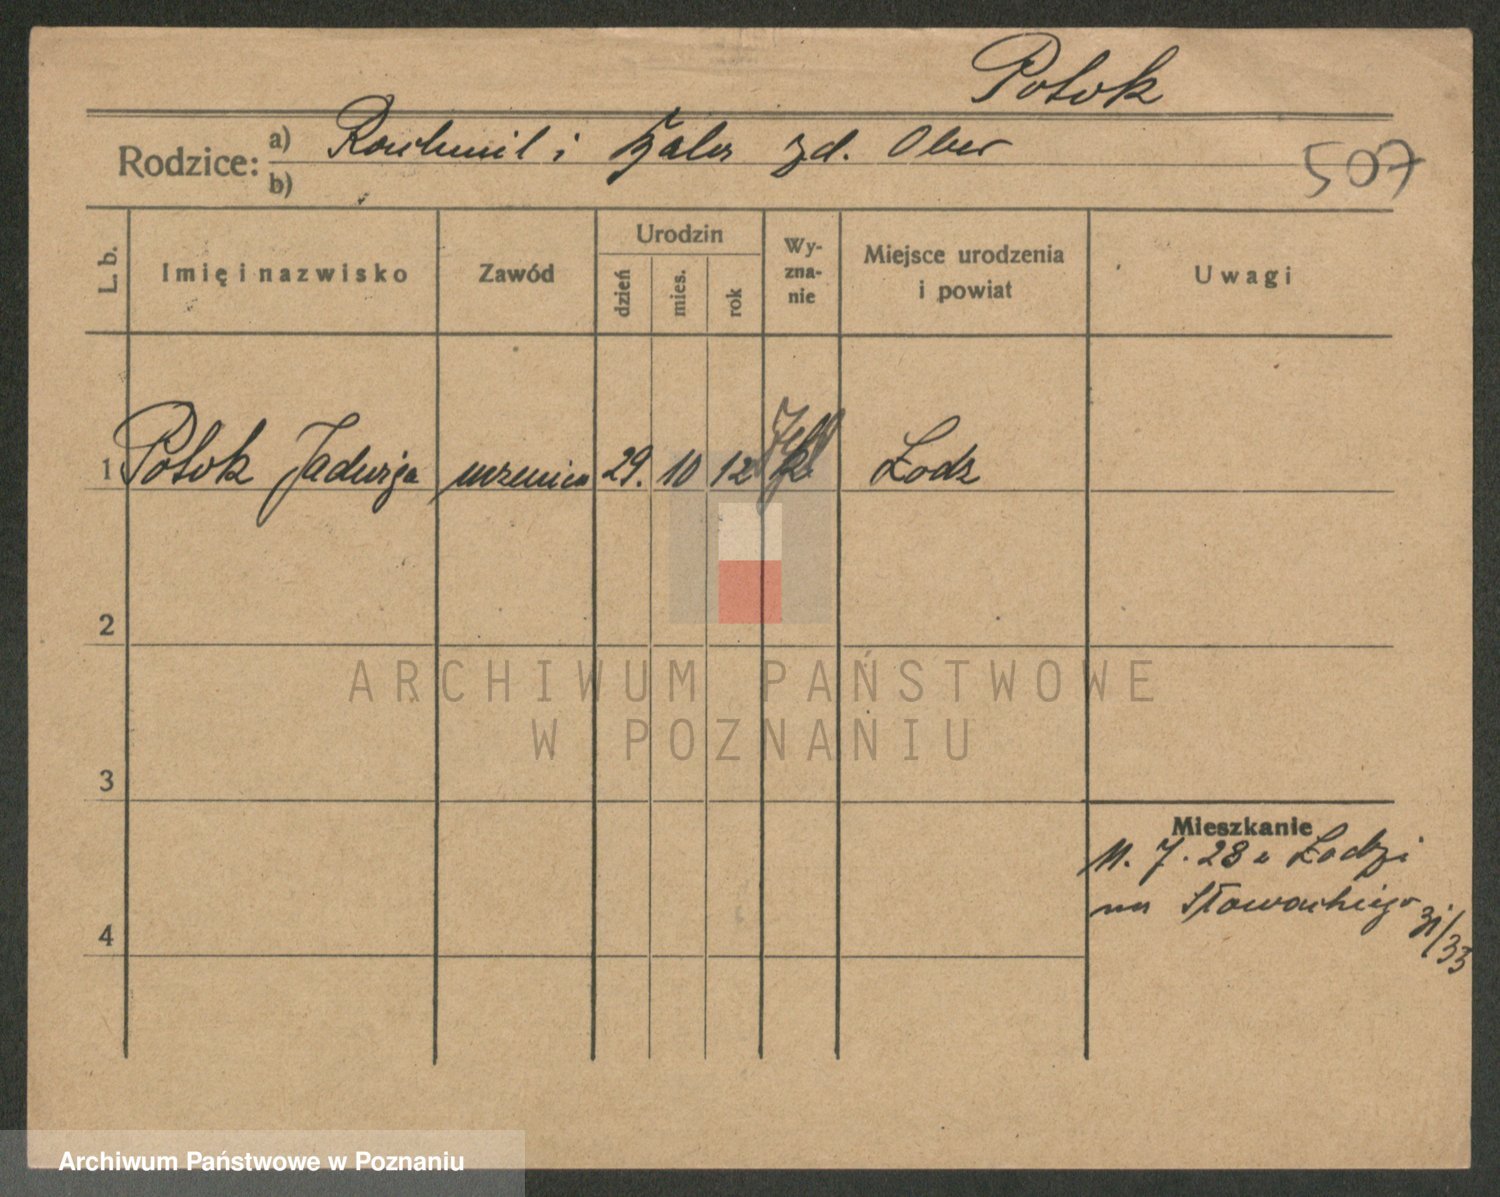 Potok
Rodzice: a) Rachmil i Bala zd. Ober
b)
507
L. b.
Imię i nazwisko
Zawód
Urodzin
dzień
mies.
rok
Wy-
zna-
nie
Miejsce urodzenia
i powiat
Uwagi
1 Potok Jadwiga uczenica 29. 10 12 Łodz
2
3
4
Mieszkanie
11. 7. 28 z Łodzi
na Słowackiego 31/33
ARCHIWUM PAŃSTWOWE
W POZNANIU
Archiwum Państwowe w Poznaniu